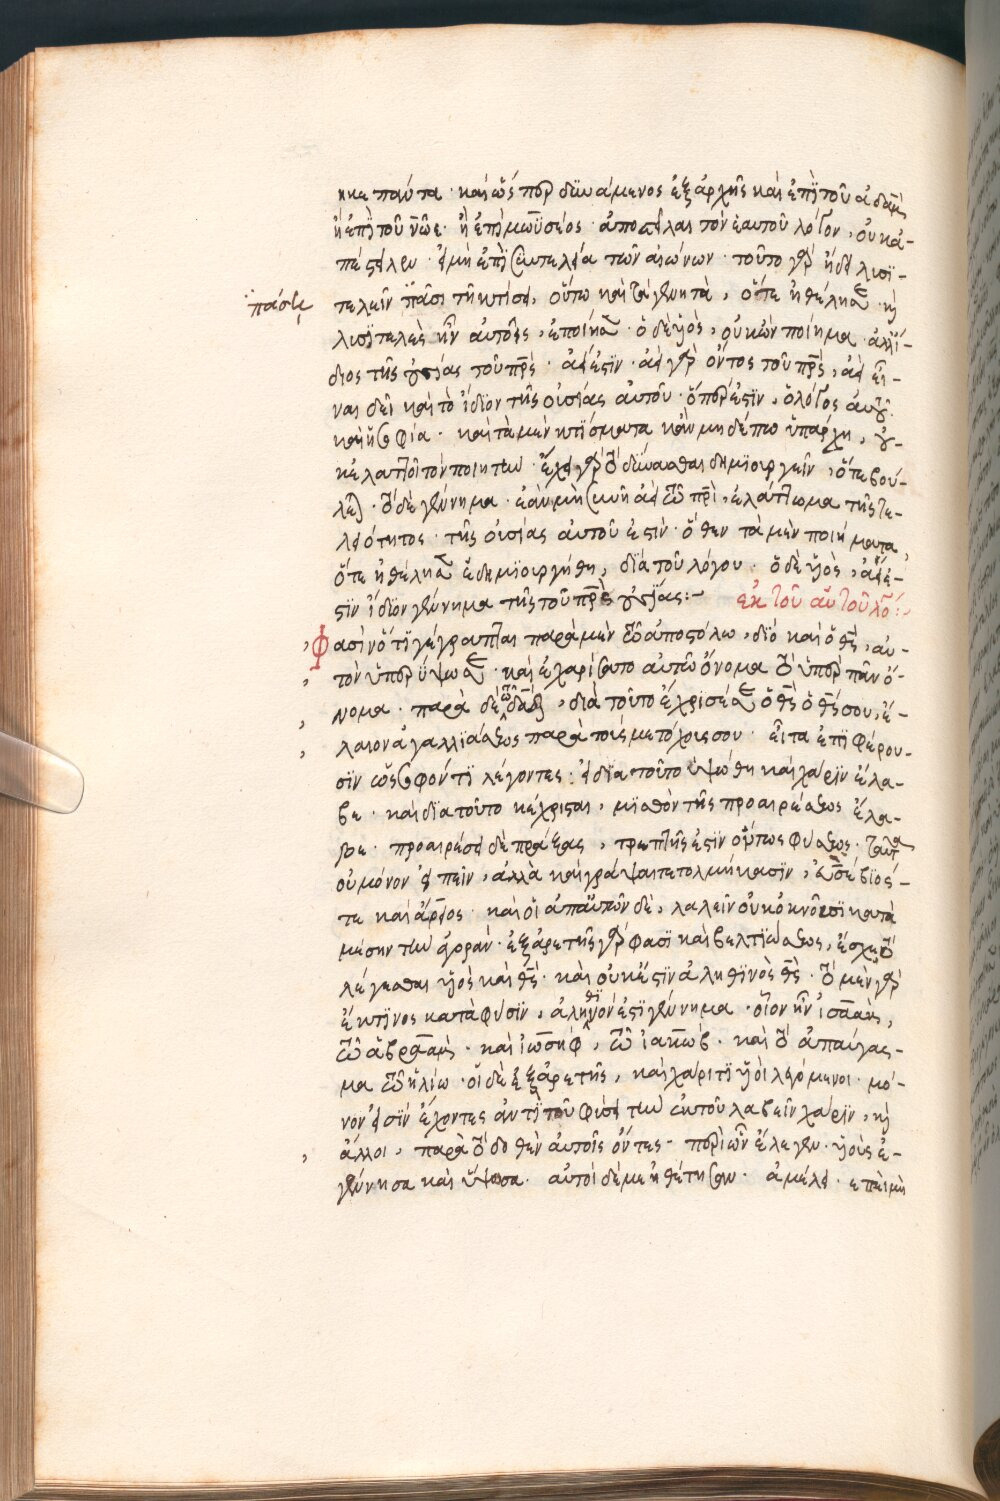 κηε πάντα · καὶ ὥς περ δυνάμενος ἐξ ἀρχῆς καὶ ἐπὶ τοῦ ἀδὰμ
ἢ ἐπὶ τοῦ νῶε · ἢ ἐπὶ μωϋσέος · ἀποστεῖλαι τὸν ἑαυτοῦ λόγον, οὐκ ἀ-
πέστειλεν · εἰ μὴ ἐπὶ συντελεία τῶν αἰώνων · τοῦτο γὰρ ἤδει λυσϊ-
πάσῃ
τελεῖν πᾶσι τῆ κτίσει, οὕτω καὶ τὰ γενητὰ, ὅτε ἠθέλησε · κὴ
λυσϊτελὲς ἦν αὐτοῖς, ἐποίησε · ὁ δὲ υἱὸς, οὐκ ὢν ποίημα · ἀλλ' ἴ-
διος τῆς οὐσίας τοῦ πρς · ἀεί ἐστϊν · ἀεὶ γὰρ ὄντος τοῦ πρς, ἀεὶ εἶ-
ναι δεῖ καὶ τὸ ἴδιον τῆς οὐσίας αὐτοῦ · ὅπερ ἐστϊν, ὁ λόγος αὐτοῦ
καὶ ἡ σοφία · καὶ τὰ μὲν κτίσματα κἂν μηδέπω ὑπάρχη, οὐ-
κ ἐλαττοῖ τὸν ποιητὴν · ἔχει γὰρ τὸ δύνασθαι δημϊουργεῖν, ὅτε βού-
λεται · τὸ δὲ γένημα · ἐὰν μὴ συνῆ ἀεὶ τῶ πρὶ, ἐλάττωμα τῆς τε-
λειότητος · τῆς οὐσίας αὐτοῦ ἐστὶν · ὅθεν τὰ μὲν ποιήματα,
ὅτε ἠθέλησε ἐδημϊουργήθη, διὰ τοῦ λόγου · ὁ δὲ υἱὸς, ἀεί ἐ-
στϊν ἴδϊον γένημα τῆς τοῦ πρς οὐσϊας :- ἐκ τοῦ αὐτοῦ λό:-
Φασὶν ὅτϊ γέγραπται παρὰ μὲν τῶ ἀποστόλω, διὸ καὶ ὁ θς, αὐ-
τὸν ὑπερύψωσε · καὶ ἐχαρίσατο αὐτῶ ὄνομα τὸ ὑπὲρ πᾶν ὄ-
νομα · παρὰ δὲ τῶ δαδ, διὰ τοῦτο ἔχρισέ σε ὁ θς ὁ θς σου, ἔ-
λαιον ἀγαλλϊάσεως παρὰ τοὺς μετόχους σου · εἶτα ἐπϊφέρου-
σϊν ὡς σοφόν τϊ λέγοντες · εἰ δϊα τοῦτο ὑψώθη καὶ χάρϊν ἔλα-
βε · καὶ δϊα τοῦτο κέχρισται, μϊσθὸν τῆς προαιρέσεως ἔλα-
βε · προαιρέσει δὲ πράξας, τρεπτῆς ἐστϊν ὄντως φύσεως · ταῦτα
οὐ μόνον εἰπεῖν, ἀλλὰ καὶ γράψαι τετολμήκασϊν, εὐσέβϊός-
τε καὶ ἄρειος · καὶ οἱ ἀπ' αὐτῶν δὲ, λαλεῖν οὐκ ὀκνοῦσϊ κατὰ
μέσην τὴν ἀγορὰν · ἐξ ἀρετῆς γάρ φασϊ καὶ βελτϊώσεως, ἔσχε τὸ
λέγεσθαι υἱὸς καὶ θς · καὶ οὐκ ἔστϊν ἀληθϊνὸς θς · τὸ μὲν γὰρ
ἔκ τϊνος κατὰ φύσϊν, ἀληθϊνόν ἐστϊ γένημα · οἷον ἦν ἰσαὰκ,
τῶ ἀβραὰμ · καὶ ἰωσὴφ, τῶ ἰακὼβ · καὶ τὸ ἀπαύγασ-
μα τῶ ἡλίω · οἱ δὲ ἐξ ἀρετῆς, καὶ χάριτϊ υἱοὶ λεγόμενοι · μό-
νον εἰσϊν ἔχοντες ἀντὶ τοῦ φύσει τὴν ἐκ τοῦ λαβεῖν χάρϊν, κὴ
ἄλλοι, παρὰ τὸ δοθὲν αὐτοῖς ὄντες - περὶ ὧν ἔλεγεν · υἱοὺς ἐ-
γέννησα καὶ ὕψωσα · αὐτοὶ δέ με ἠθέτησαν · ἀμέλει · ἐπεὶ μὴ